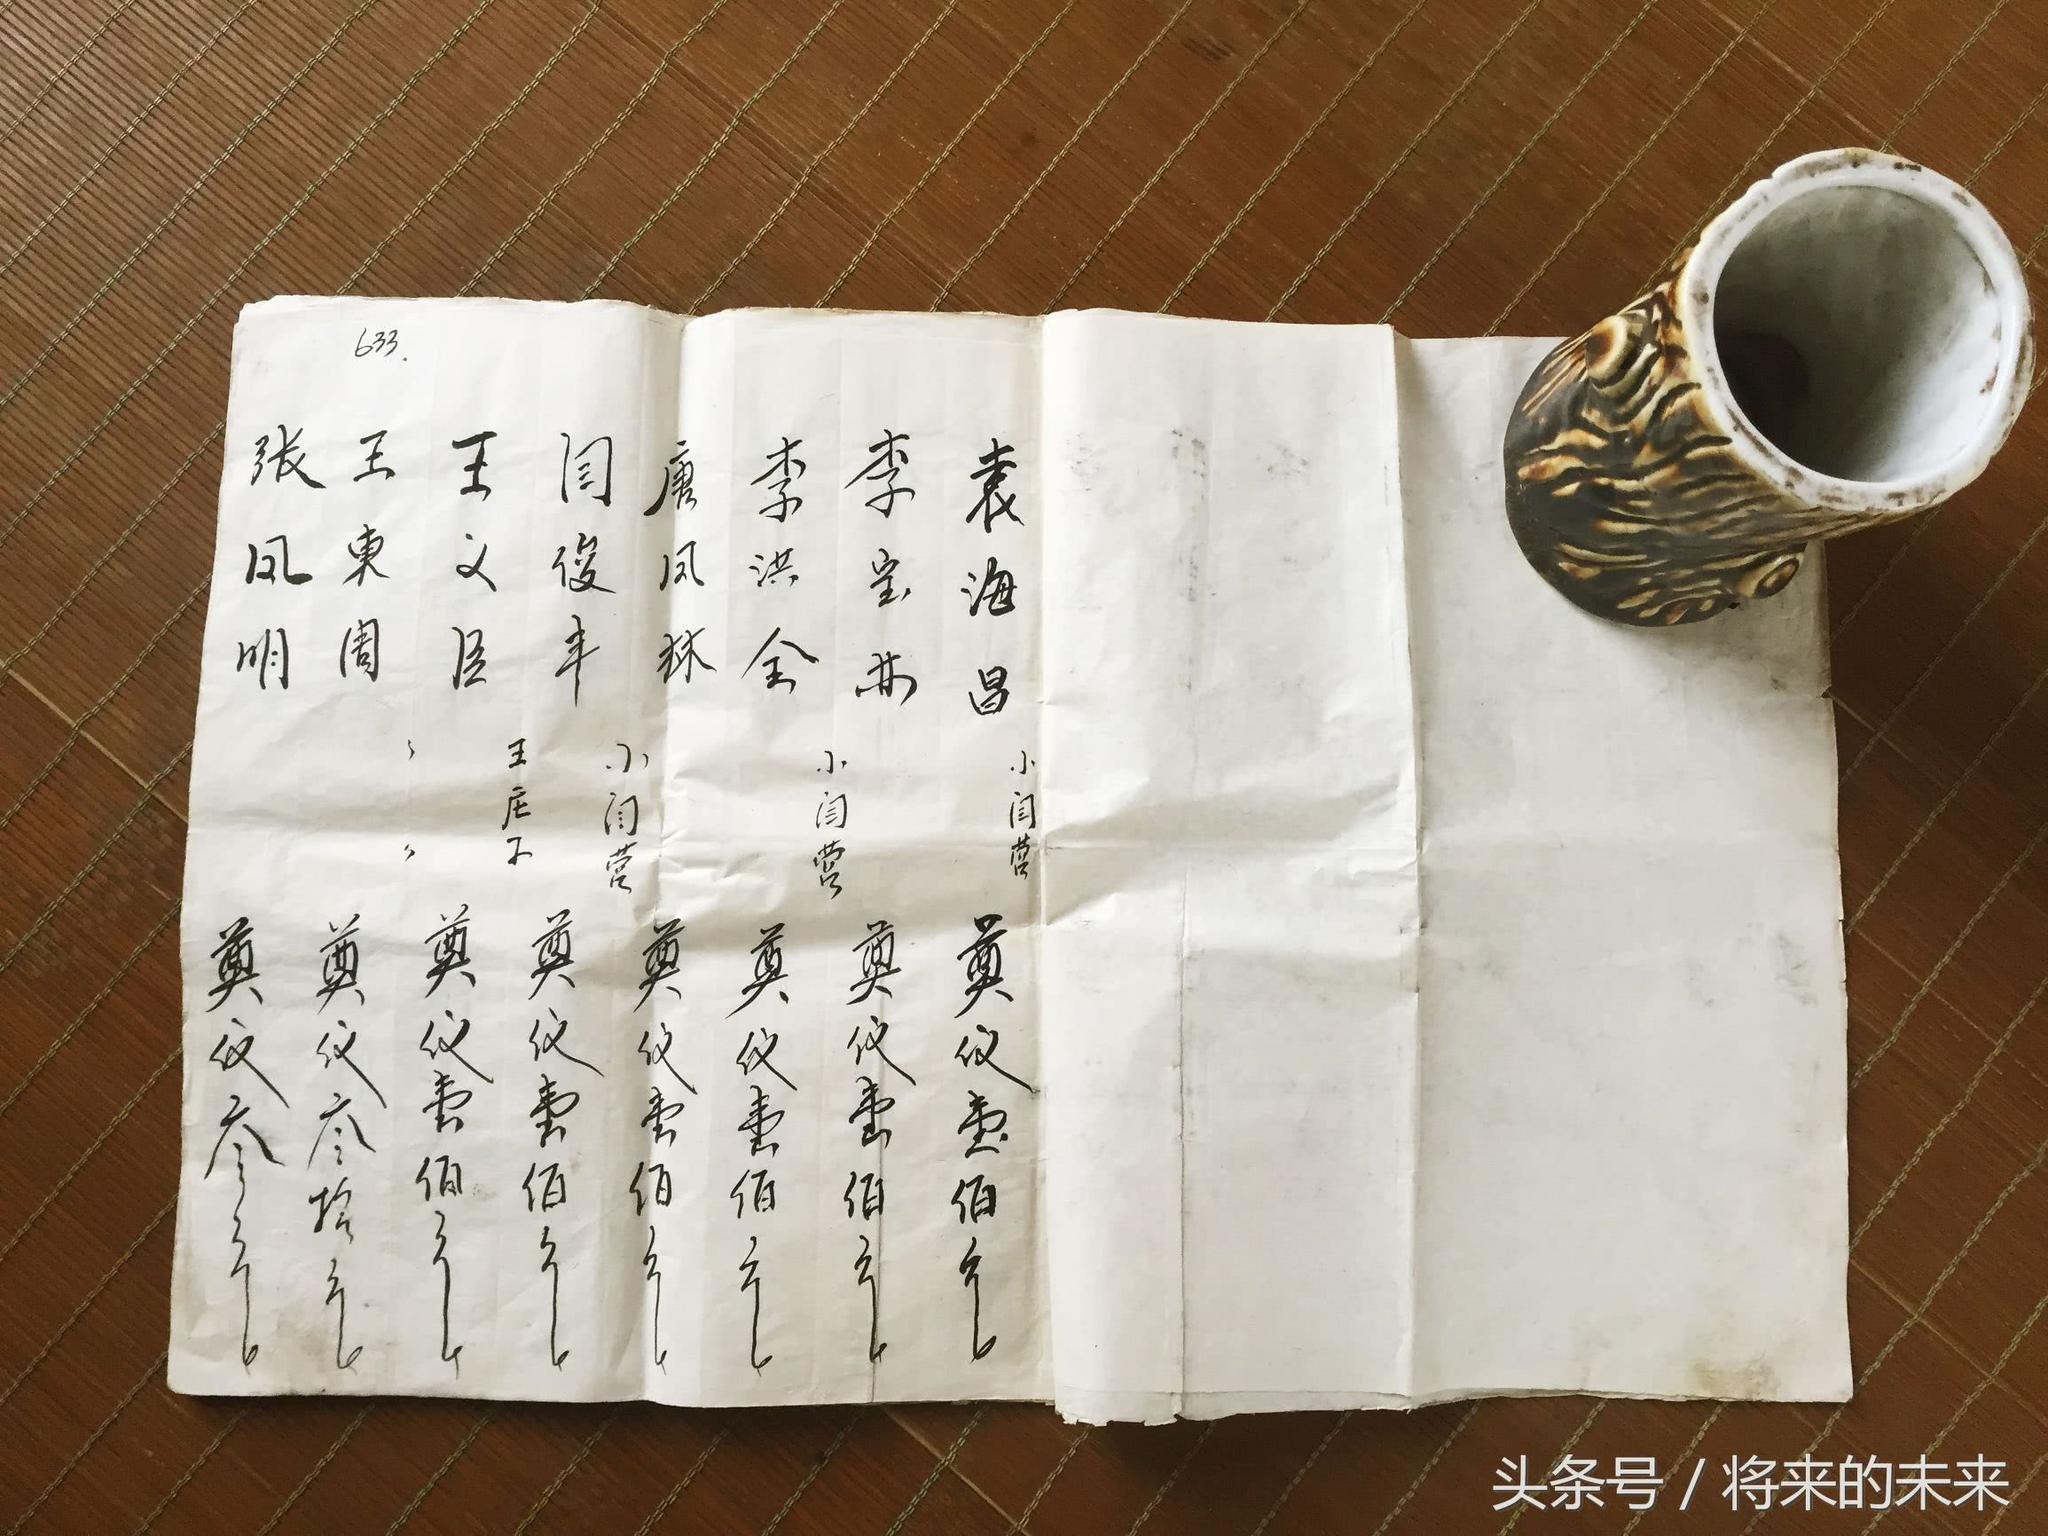 袁海昌 小闫营 奠仪壹佰元
李宝 奠仪壹佰元
李洪全 小闫营 奠仪壹佰元
唐凤林 奠仪壹佰元
闫俊丰 小闫营 奠仪壹佰元
王文臣 王庄子 奠仪壹佰元
王東周 〃 奠仪叁拾元
张凤明 奠仪叁元
633.
头条号 / 将来的未来